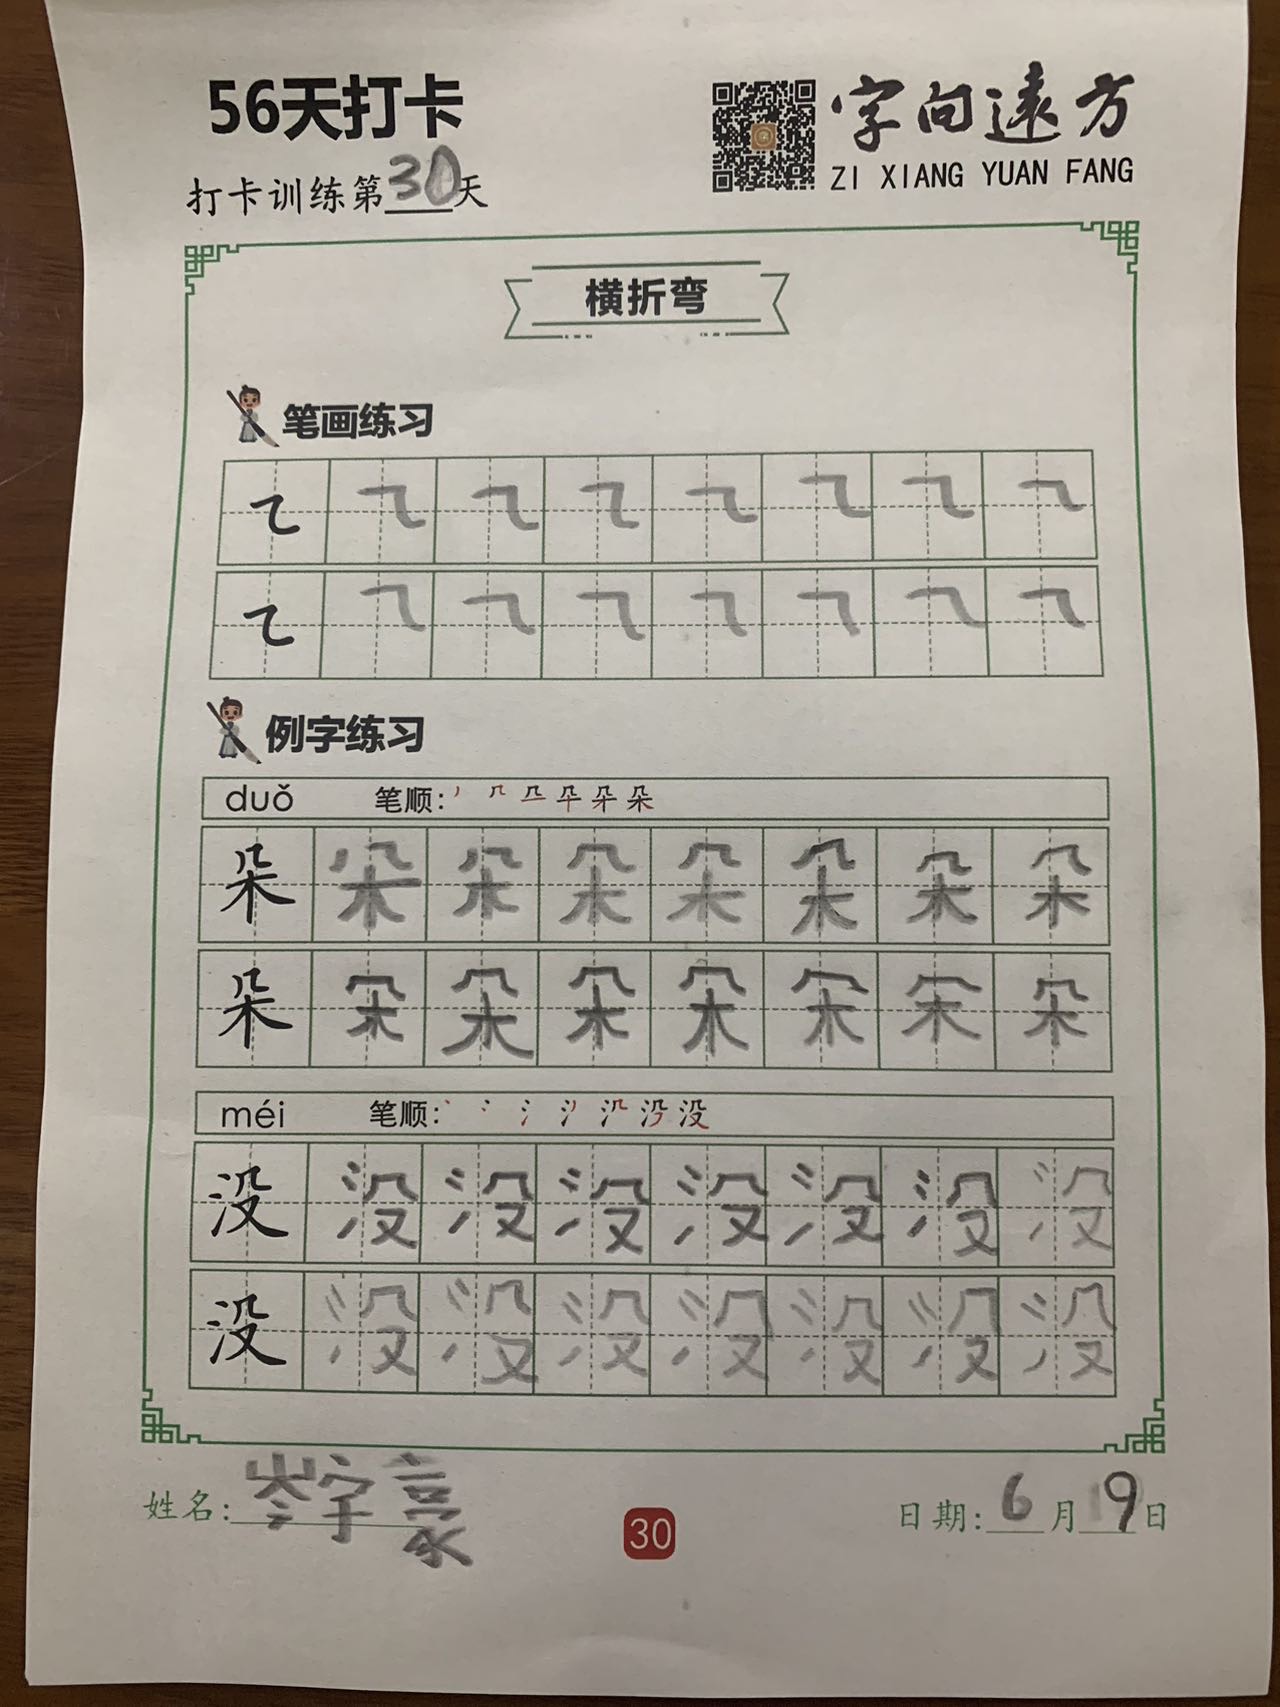 56天打卡
字向遠方
ZI XIANG YUAN FANG
打卡训练第30天
横折弯
笔画练习
㇍ ㇍ ㇍ ㇍ ㇍ ㇍ ㇍ ㇍
㇍ ㇍ ㇍ ㇍ ㇍ ㇍ ㇍ ㇍
例字练习
duǒ 笔顺:
朵 朵 朵 朵 朵 朵 朵 朵
朵 朵 朵 朵 朵 朵 朵 朵
méi 笔顺:
没 没 没 没 没 没 没 没
没 没 没 没 没 没 没 没
姓名: 岑宇豪
30
日期: 6月19日